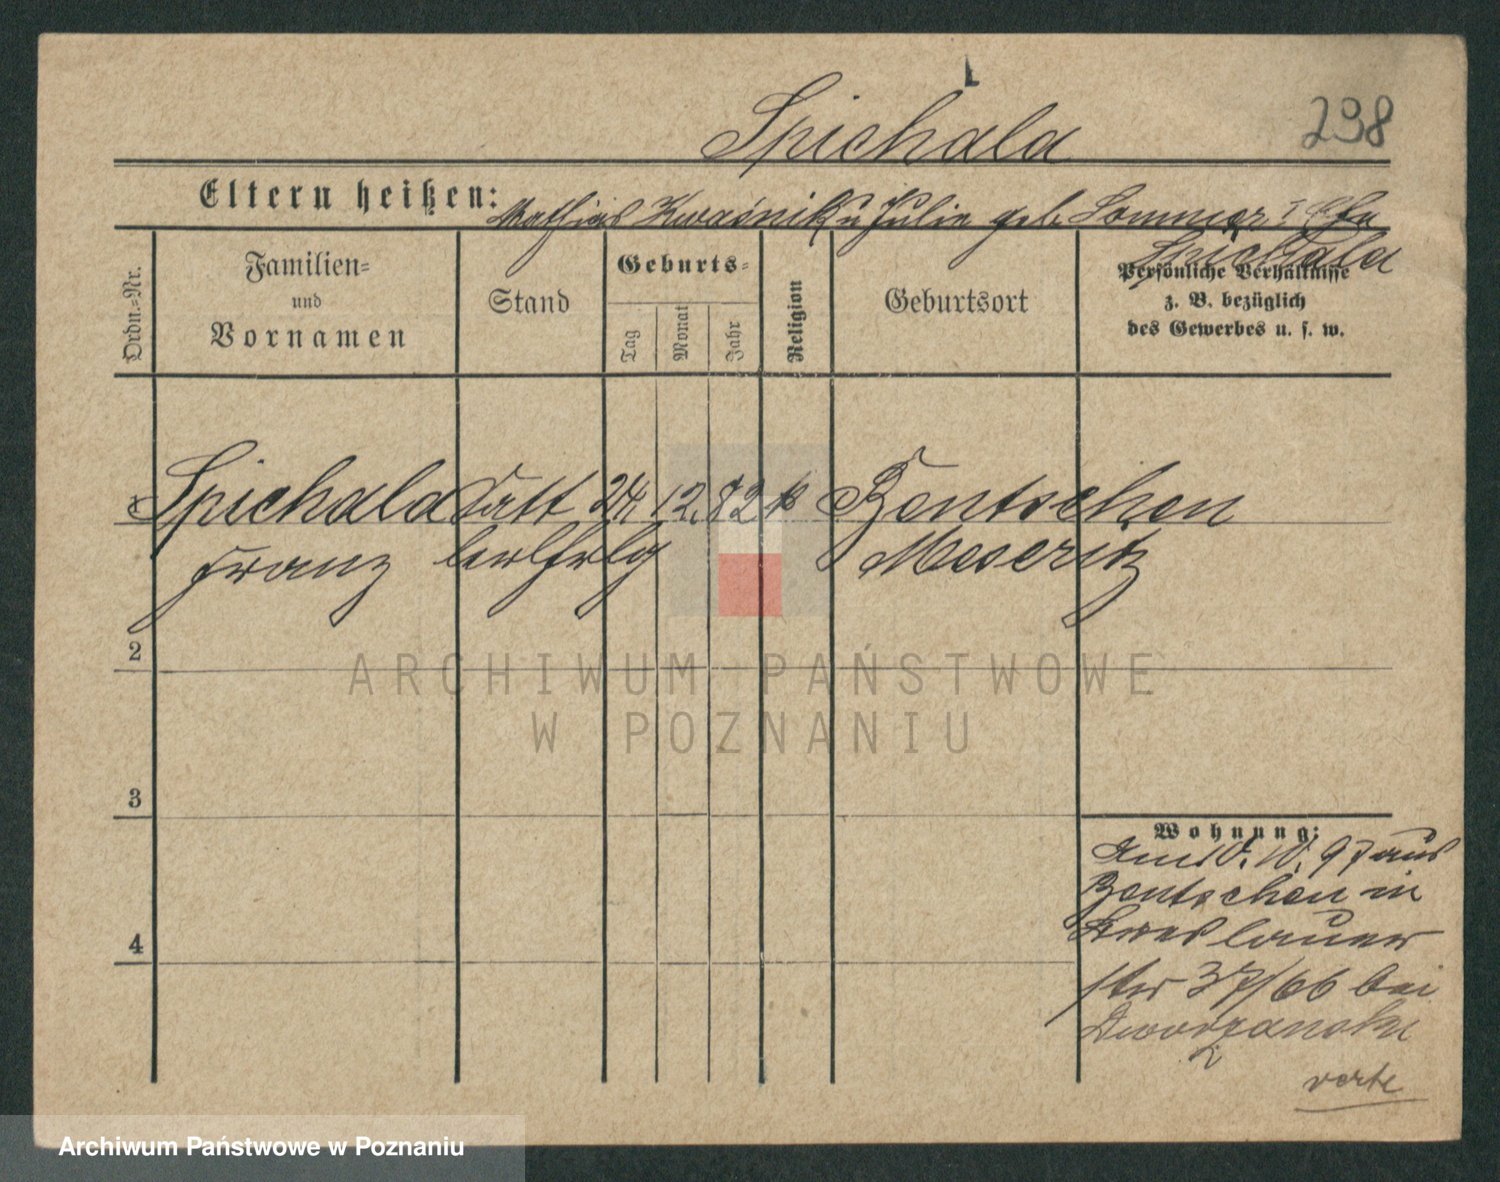 Spichala
298
Eltern heißen:
Mathias Kwaśnik u Julie geb. Sommer I Ehe
Spichala
Ordn.=Nr.
Familien=
und
Vornamen
Stand
Geburts=
Tag
Monat
Jahr
Religion
Geburtsort
Persönliche Verhältnisse
z. B. bezüglich
des Gewerbes u. s. w.
1 Spichala 24 12. 82 k Bentschen
Franz Meseritz
2
3
4
Wohnung:
Am 10. 97 aus
Bentschen in
Breslauer
str 37/66 bei
Dworzanski
verte
ARCHIWUM PAŃSTWOWE
W POZNANIU
Archiwum Państwowe w Poznaniu